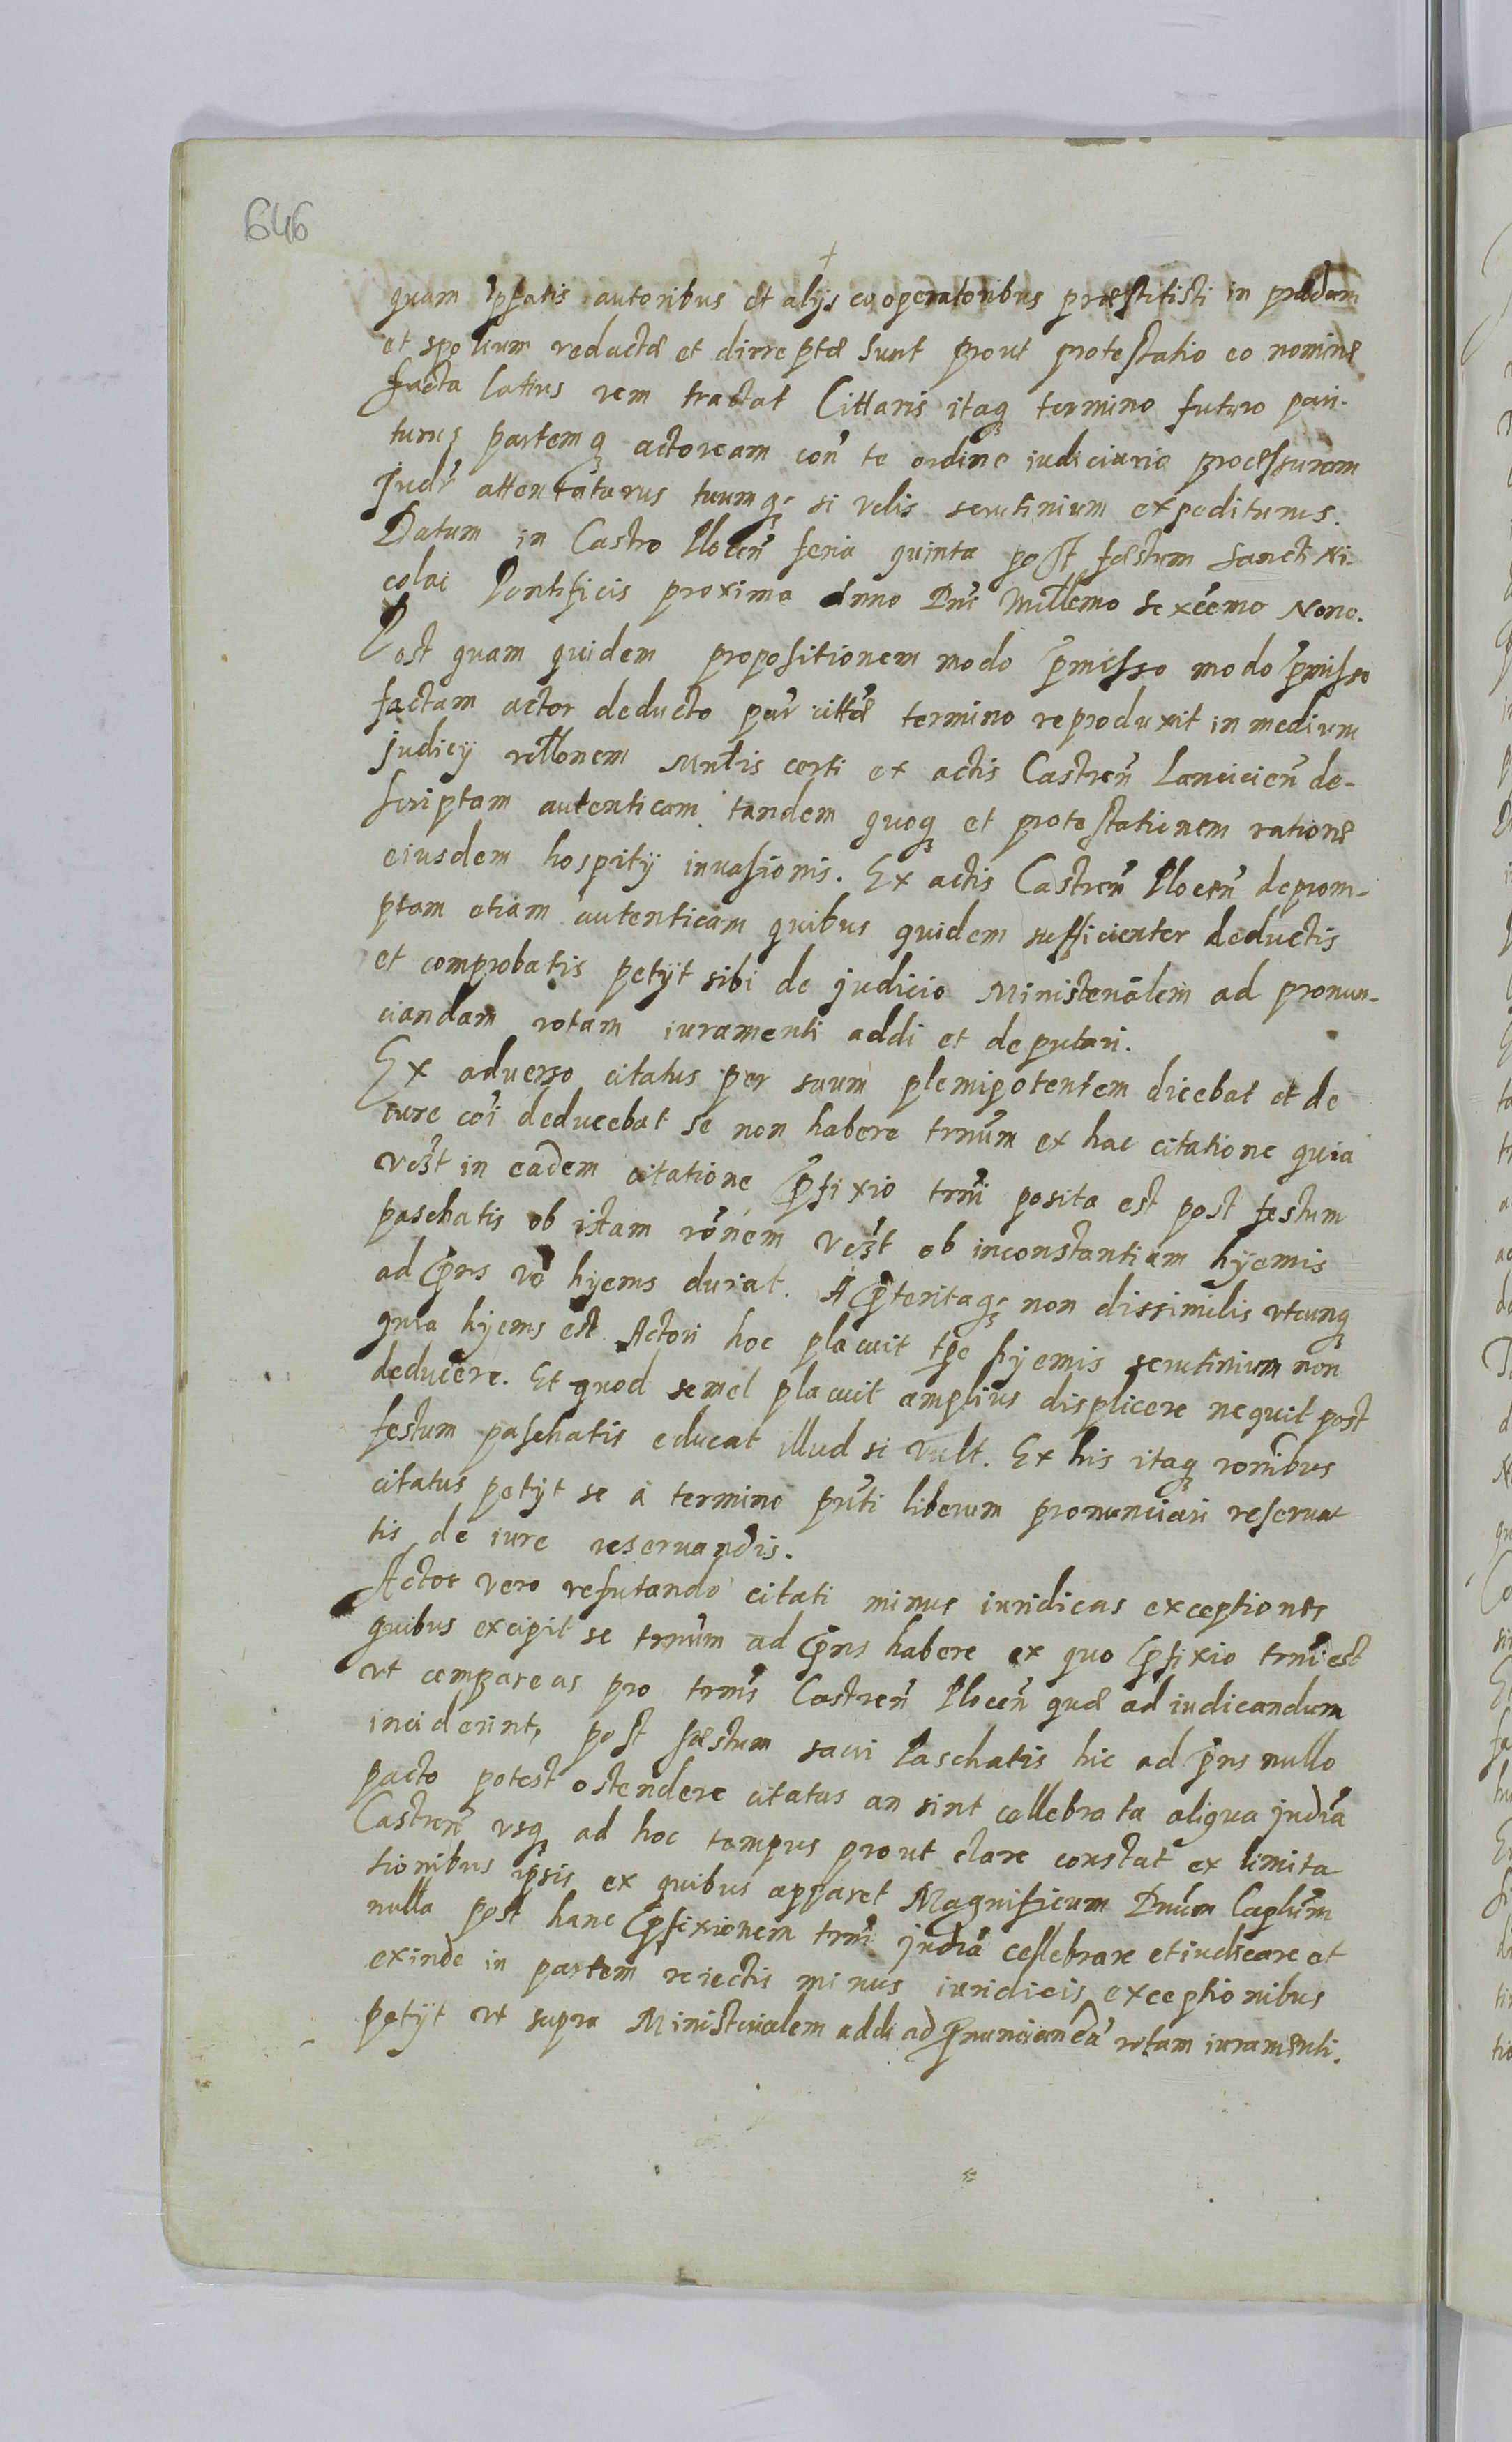 646
quam ipsatis autoribus et alys cooperatoribus præstitisti in prædam
et spolium reductæ et dirreptæ sunt prout protestatio eo nominæ
facta latius rem tractat Cittaris itaq termino futuro pari-
turus partemq actoream con̄ te ordine iudiciario processuram
Judi attentaturus tuumq si velis scrutinium expeditums.
Datum in Castro Plocen̄ feria quinta post fæstum Sancti Ni-
colai Pontificis proxima Anno Dni Millemo Sexcemo Nono.
Post quam quidem propositionem modo p̄misso modo p̄misso
factam actor deducto par cittæ termino reproduxit in medium
judicy rellonem Mntlis certi ex actis Castren̄ Lancicien̄ de-
scriptam autenticam tandem quoq et protestationem rationæ
eiusdem hospitij invasionis. Ex actis Castren̄ Plocen̄ deprom-
ptam etiam autenticam quibus quidem sufficienter deductis
et comprobatis petijt sibi de judicio Ministerialem ad pronun-
ciandam rotam iuramenti addi et deputari.
Ex aduerso citatus per suum plenipotentem dicebat et de
iure coi deducebat se non habere trnūm ex hac citatione quia
vezt in eadem citatione p̄fixio trni posita est post festum
paschatis ob istam rōnem vezt ob inconstantiam hyemis
ad p̄ns vo hyems durat. A p̄teritaq non dissimilis vtcunq
quia hyems est Actori hoc placuit tpe hyemis scrutinium non
deducere. Et quod semel placuit amplius displicere nequit post
festum paschatis educat illud si vult. Ex his itaq ronibus
citatus petijt se a termino pn̄ti liberum pronunciari reseruat
tis de iure reseruandis.
Actor vero refutando citati minus iuridicas exceptiones
quibus excipit se trnūm ad p̄ns habere ex quo p̄fixio trni est
vt compareas pro trnis Castren̄ Plocen̄ quæ ad iudicandum
inciderint, post fæstum sacri Paschatis hic ad p̄ns nullo
pacto potest ostendere citatus an sint cellebrata aliqua judia
Castren̄ vsq ad hoc tempus prout clare constat ex limita
tionibus ipsis ex quibus apparet Magnificum Dnūm Caplūm
nulla post hanc p̄fixionem trni judia cellebrare et iudicare et
exinde in partem reiectis minus iuridicis exceptionibus
petijt vt supra Ministerialem addi ad p̄nunciandā rotam iuramenti.